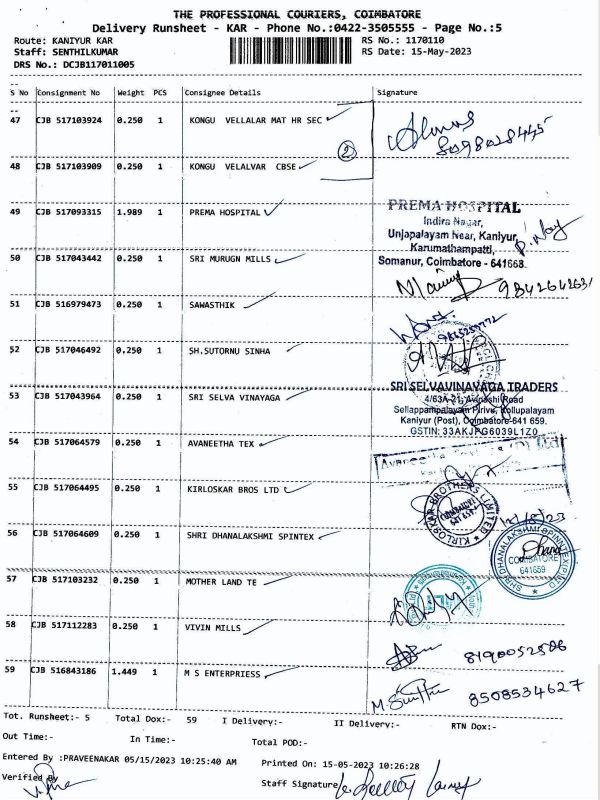 THE PROFESSIONAL COURIERS, COIMBATORE
Delivery Runsheet - KAR - Phone No.:0422-3505555 - Page No.:5
Route: KANIYUR KAR
RS No.: 1170110
Staff: SENTHILKUMAR
RS Date: 15-May-2023
DRS No.: DCJB117011005
S No Consignment No Weight PCS Consignee Details Signature
47 CJB 517103924 0.250 1 KONGU VELLALAR MAT HR SEC
2
48 CJB 517103909 0.250 1 KONGU VELALVAR CBSE
49 CJB 517093315 1.989 1 PREMA HOSPITAL
PREMA HOSPITAL
Indira Nagar,
Unjapalayam Near, Kaniyur,
Karumathampatti,
Somanur, Coimbatore - 641668.
50 CJB 517043442 0.250 1 SRI MURUGN MILLS
51 CJB 516979473 0.250 1 SAWASTHIK
52 CJB 517046492 0.250 1 SH.SUTORNU SINHA
53 CJB 517043964 0.250 1 SRI SELVA VINAYAGA
SRI SELVAVINAYAGA TRADERS
4/63A-21, Avinashi Road
Sellappampalayam Pirive, Kollupalayam
Kaniyur (Post), Coimbatore-641 659.
54 CJB 517064579 0.250 1 AVANEETHA TEX
55 CJB 517064495 0.250 1 KIRLOSKAR BROS LTD
KIRLOSKAR BROTHERS LIMITED
56 CJB 517064609 0.250 1 SHRI DHANALAKSHMI SPINTEX
COIMBATORE
641659
57 CJB 517103232 0.250 1 MOTHER LAND TE
58 CJB 517112283 0.250 1 VIVIN MILLS
8190052586
59 CJB 516843186 1.449 1 M S ENTERPRIESS
8508534627
Tot. Runsheet:- 5 Total Dox:- 59 I Delivery:- II Delivery:- RTN Dox:-
Out Time:- In Time:- Total POD:-
Entered By :PRAVEENAKAR 05/15/2023 10:25:40 AM Printed On: 15-05-2023 10:26:28
Verified By
Staff Signature